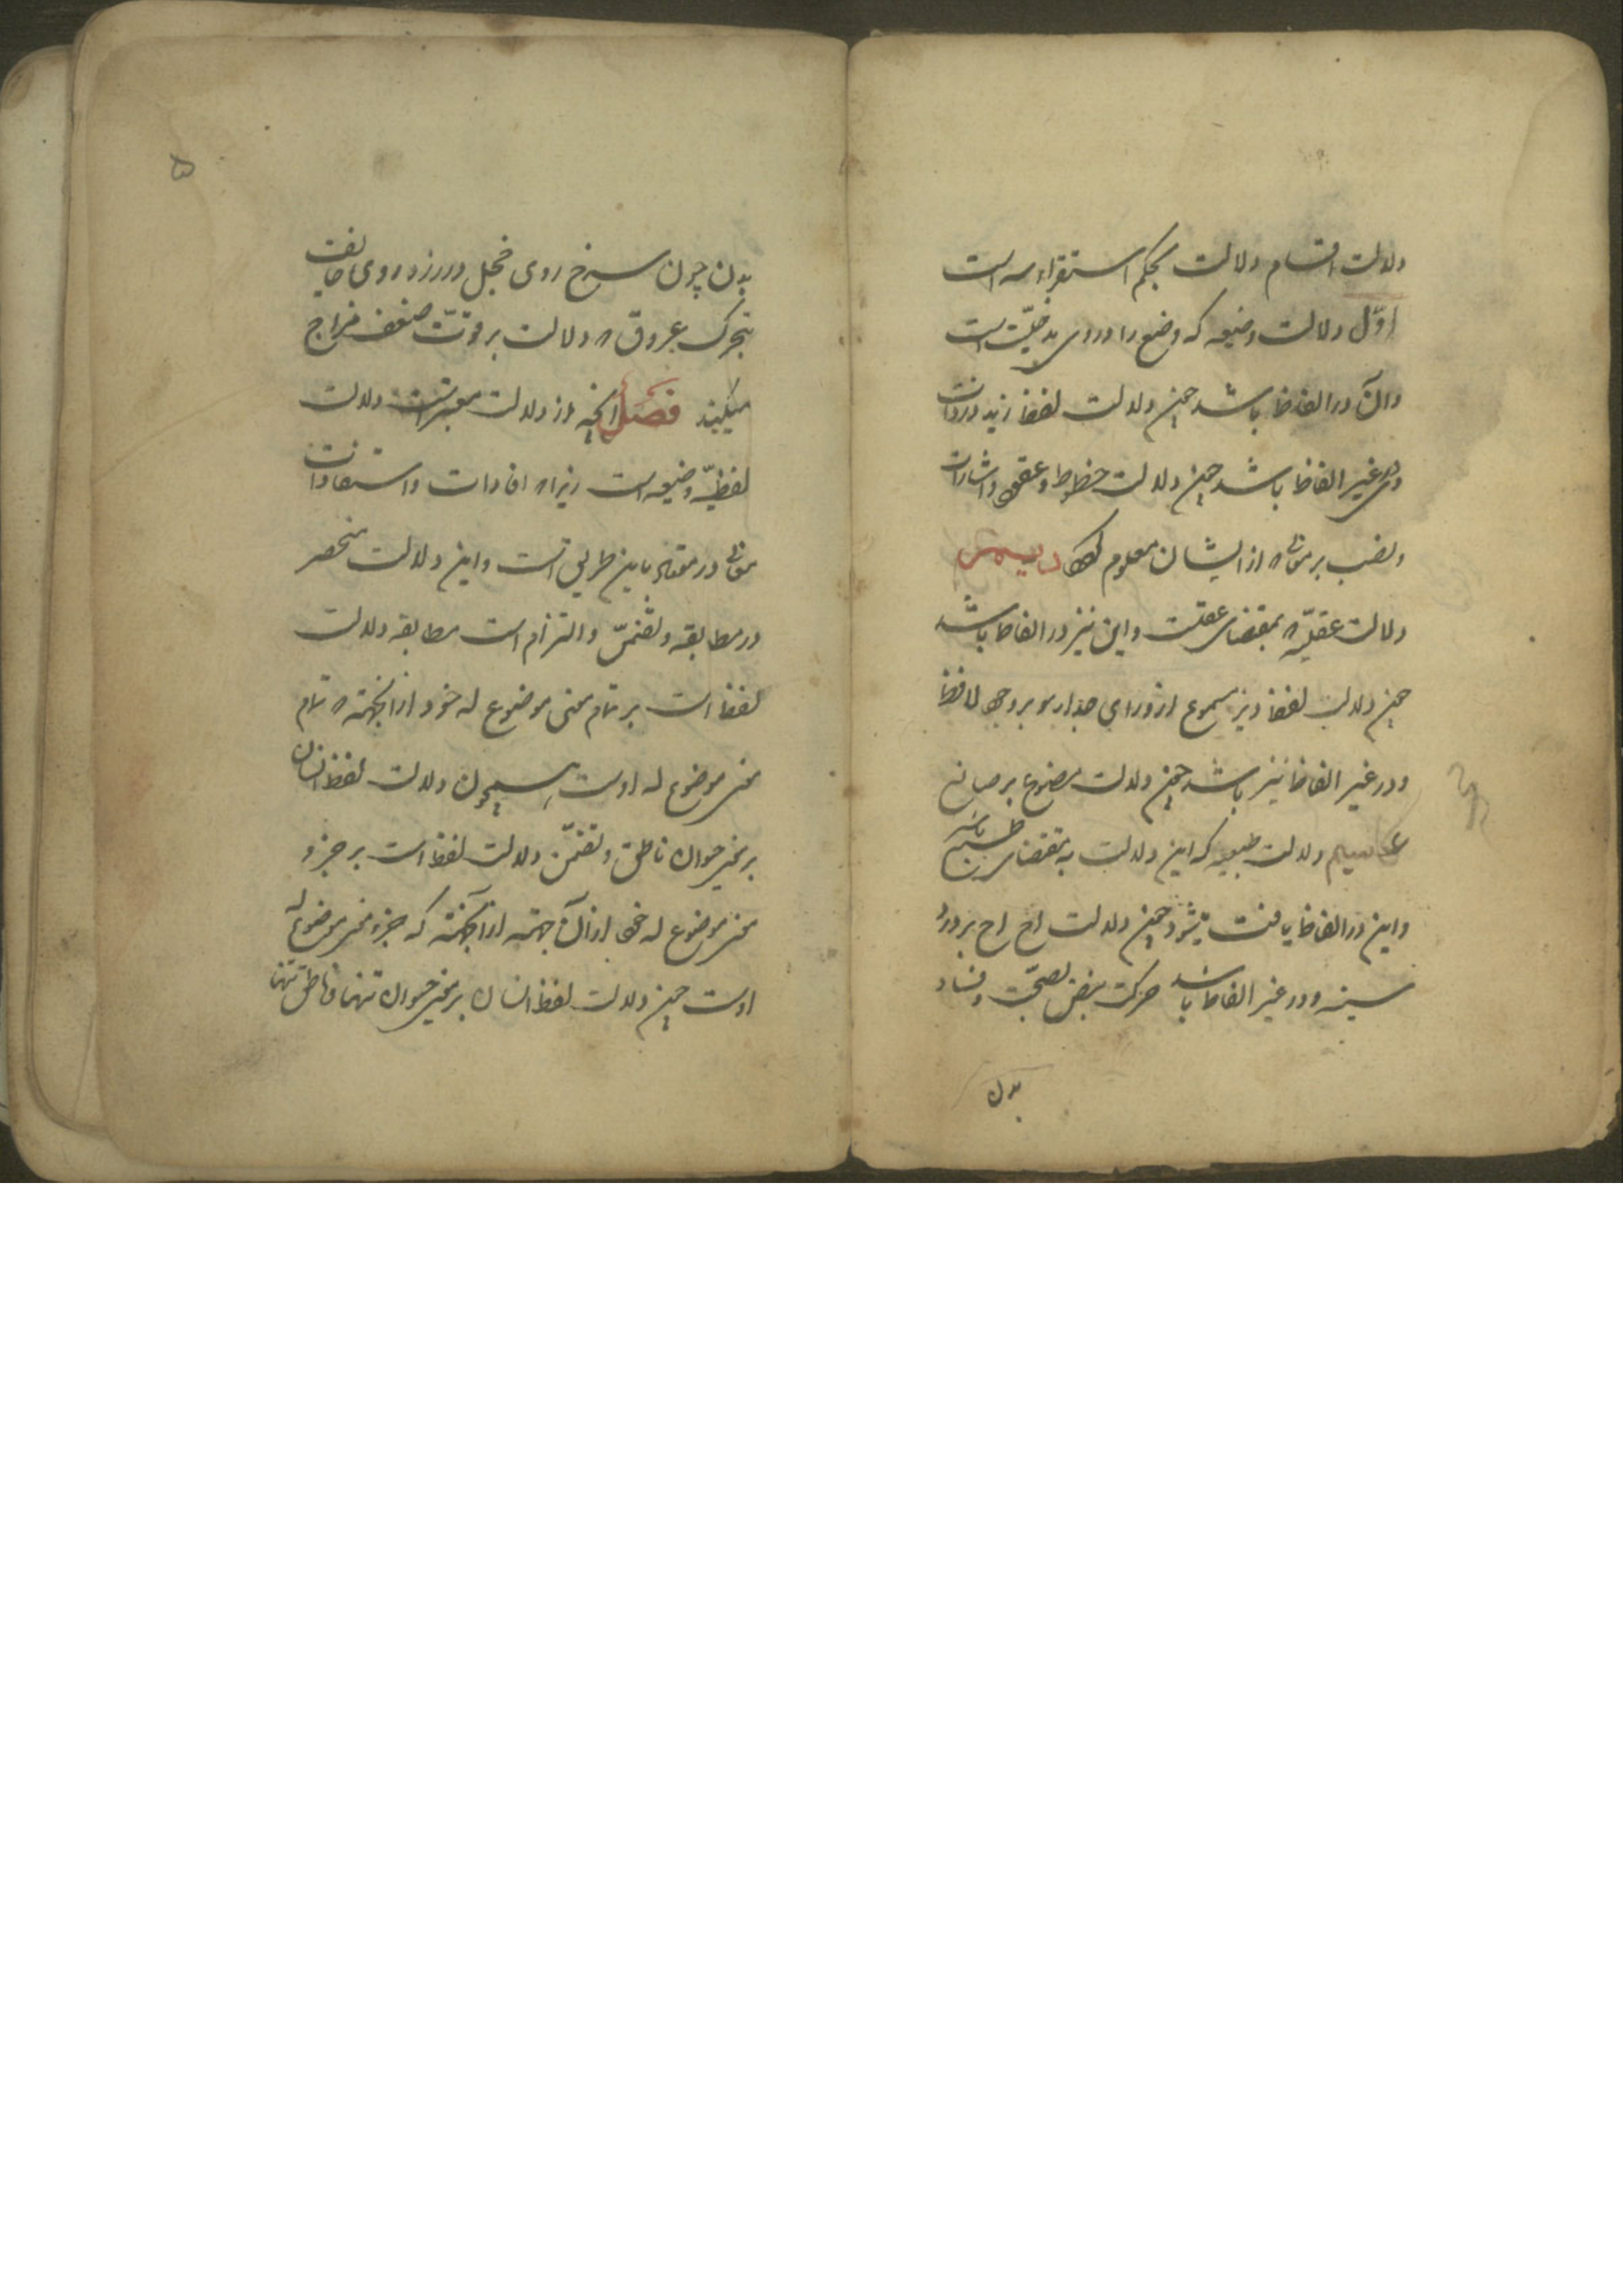 دلالت اقسام دلالت بحکم استقراء سه است
اوّل دلالت وضعیه که وضع را در وی مدخلیّت است
وآن در الفاظ باشد چون دلالت لفظ زید بر ذات
ودر غیر الفاظ باشد چون دلالت خطوط وعقود واشارات
ونصب بر معانی که از ایشان معلوم دویم
دلالت عقلیّه که بمقتضای عقلست واین نیز در الفاظ باشد
چون دلالت لفظ دیز مسموع از ورای جدار بر وجود لافظ
ودر غیر الفاظ نیز باشد چون دلالت مصنوع بر صانع
سیم دلالت طبیعیه که این دلالت به مقتضای طبع باشد
واین در الفاظ یافت میشود چون دلالت اح اح بر درد
سینه ودر غیر الفاظ باشد حرکت نبض بصحّت وفساد
بدن
۵
بدن چون سرخ روی خجل وزرد روی خایف
بتحرک عروق که دلالت بر قوّت ضعف مزاج
میکنند فصل آنچه از دلالت معتبر است دلالت
لفظیّه وضعیه است زیرا که افادات واستفادات
معانی در معتاد باین طریق است واین دلالت منحصر
در مطابقه وتضمّن والتزام است مطابقه دلالت
لفظ است بر تمام معنی موضوع له خود از آنجهته که تمام
معنی موضوع له اوست همچون دلالت لفظ انسان
بر معنی حیوان ناطق وتضمّن دلالت لفظ است بر جزو
معنی موضوع له خود از آن جهته از آنجهته که جزو معنی موضوع له
اوست چون دلالت لفظ انسان بر معنی حیوان تنها وناطق تنها